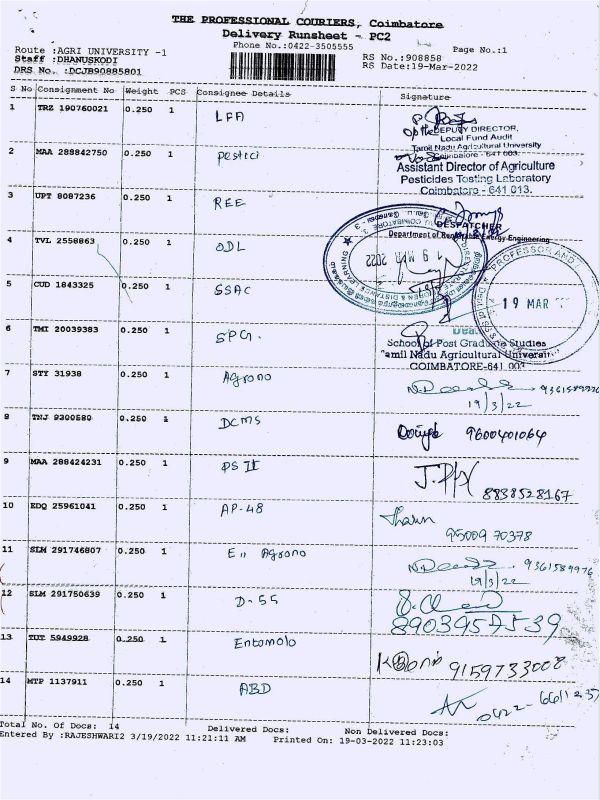 THE PROFESSIONAL COURIERS, Coimbatore
Delivery Runsheet - PC2
Phone No.:0422-3505555
Page No.:1
Route :AGRI UNIVERSITY -1
Staff :DHANUSKODI
DRS No. :DCJB90885801
RS No.:908858
RS Date:19-Mar-2022
S No Consignment No Weight PCS Consignee Details Signature
1 TRZ 190760021 0.250 1 LFA
DEPUTY DIRECTOR,
Local Fund Audit
Tamil Nadu Agricultural University
Coimbatore - 641 003.
2 MAA 288842750 0.250 1 pestici
Assistant Director of Agriculture
Pesticides Testing Laboratory
Coimbatore - 641 013.
3 UPT 8087236 0.250 1 REE
DESPATCHER
Department of Renewable Energy Engineering
4 TVL 2558863 0.250 1 ODL
19 MAR 2022
5 CUD 1843325 0.250 1 SSAC
PROFESSOR AND
19 MAR
6 TMI 20039383 0.250 1 SPG.
Dean
School of Post Graduate Studies
Tamil Nadu Agricultural University
COIMBATORE-641 003
7 STY 31938 0.250 1 Agrono
19/3/22
8 TNJ 9300580 0.250 1 DCMS 9600401064
9 MAA 288424231 0.250 1 PS II 8838528167
10 EDQ 25961041 0.250 1 AP-48
95009 70378
11 SLM 291746807 0.250 1 E,, Agrono 9361589976
19/3/22
12 SLM 291750639 0.250 1 D-55
8903957539
13 TUT 5949928 0.250 1 Entomolo 9159733002
14 MTP 1137911 0.250 1 ABD
0422-6611237
Total No. Of Docs: 14 Delivered Docs: Non Delivered Docs:
Entered By :RAJESHWARI2 3/19/2022 11:21:11 AM Printed On: 19-03-2022 11:23:03